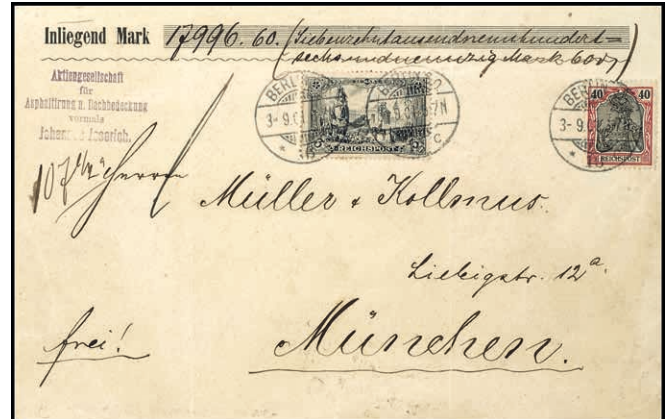 Inliegend Mark 17996.60. (Siebenzehntausendneunhundert=
sechsundneunzig Mark 60 ₰)
Aktiengesellschaft
für
Asphaltirung u. Dachbedeckung
vormals
Johannes Jeserich.
BERLIN
3-9.0
REICHSPOST
BERLIN SO
7N
c
40 40
REICHSPOST
BERLIN
3-9.0
Herren
Müller & Kollmus.
Liebigstr. 12a.
frei!
München.